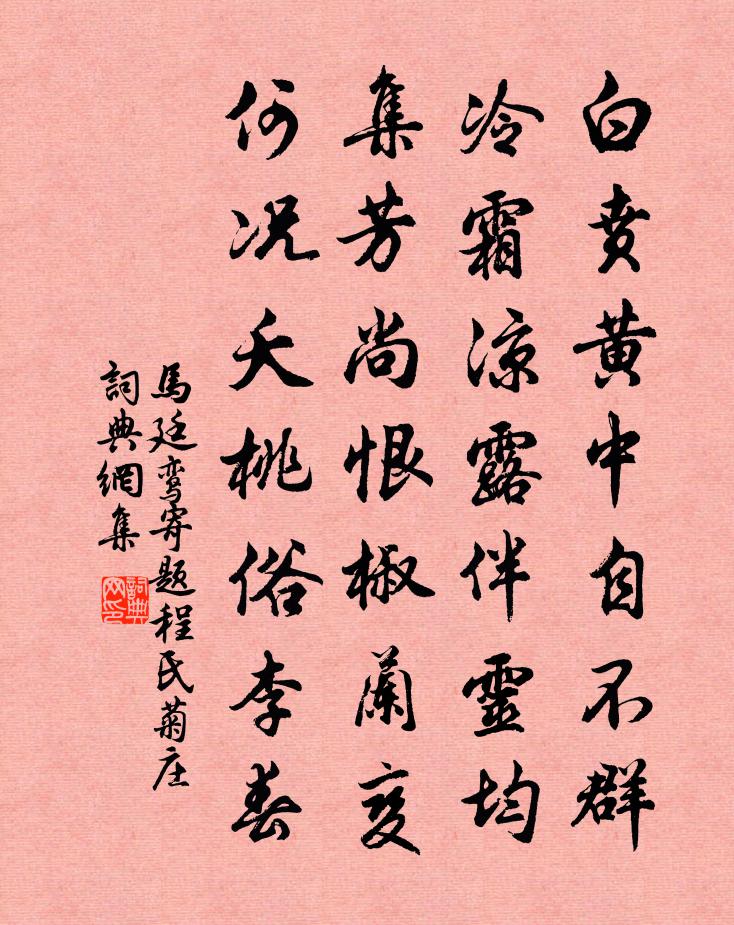 白賁黄中自不群
冷霜凉露伴靈均
集芳尚恨椒蘭变
何况夭桃俗李春
馬廷鸾寄题程氏菊庄
詞典網集
詞典